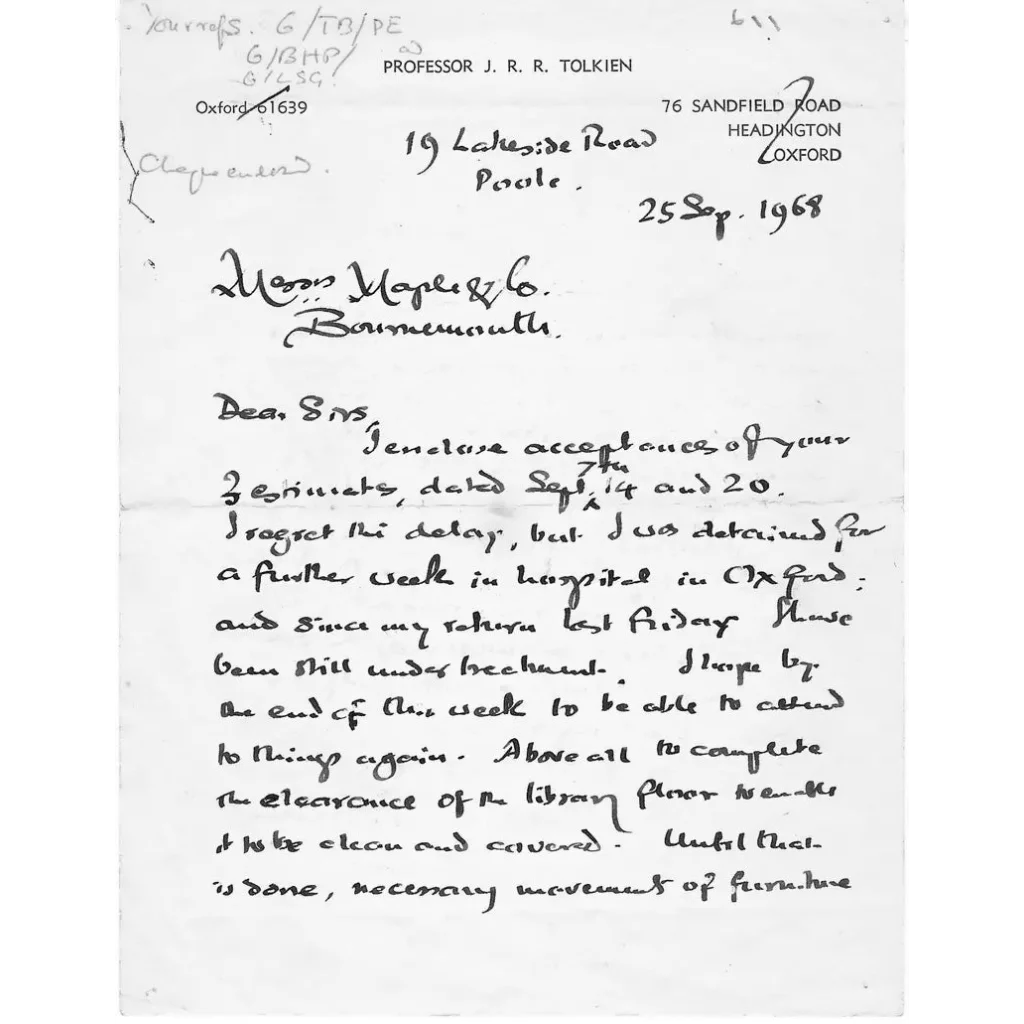 Your refs. G/TB/PE
G/BHP/
G/LSG/
611
PROFESSOR J. R. R. TOLKIEN
Oxford 61639
76 SANDFIELD ROAD
HEADINGTON
OXFORD
19 Lakeside Road
Poole.
Cheque enclosed.
25 Sep. 1968
Messrs Maple & Co.
Bournemouth.
Dear Sirs,
I enclose acceptances of your
3 estimates, dated Sept. 7th 14 and 20.
I regret the delay, but I was detained for
a further week in hospital in Oxford;
and since my return last Friday I have
been still under treatment. I hope by
the end of this week to be able to attend
to things again. Above all to complete
the clearance of the library floor to enable
it to be clean and covered. Until that
is done, necessary movement of furniture